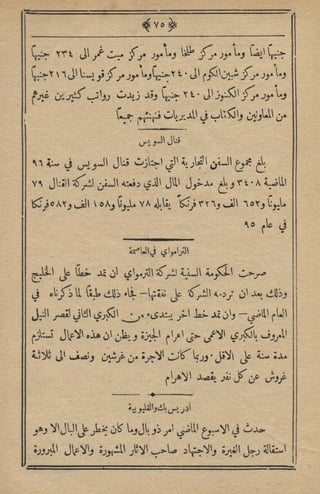 ﴿ ٧٥ ﴾
جنيهاً ايضاً ومأمور مركز طلخا ومأمور مركز ميت غمر الى ٢٣٤ جنيهاً
ومأمور مركز شبين الكوم الى ٢٤٠ جنيهاً ومأمور مركز قويسنا الى ٢١٦ جنيهاً
ومأمور مركز الكنوز الى ٢٤٠ جنيهاً وقد زيدت رواتب كثيرين غيرهم
من المعاونين والكتاب في المديريات فنهنئهم جميعاً
قنال السويس
بلغ مجموع السفن التجارية التي اجتازت قنال السويس في سنة ٩٦
الماضية ٣٤٠٨ وبلغ مدخول المال الذي دفعته السفن لشركة القنال ٧٩
مليوناً و٦٥٢ الف و٣٢٦ فرنكاً يقابله ٧٨ مليوناً و١٥٨ الف و٥٨٢ فرنكاً
في عام ٩٥
الترامواي في العاصمة
صرحت الحكومة السنية لشركة الترمواي ان تمد خطاً على الخليج
وذلك بعد ان تردمه الشركة على نفقتها — فجاء ذلك طبقاً لما ذكرناه في
العام الماضي — وان تمد خط اخر يبتدىء من الكبري الثاني لقصر النيل
المعروف بالكبري الاعمى حتى اهرام الجيزة ويظن ان هذه الاعمال تستلزم
مدة سنة على الاقل . وربما كانت الاجرة من غرشين ونصف الى ثلاثة
غروش عن كل نفر يقصد الاهرام
ادريس بك والقليوبية
حدث في الاسبوع الماضي امر ذو بال وما كان يخطر على البال الا وهو
استقالة رجل الغيرة والاجتهاد صاحب الاثار المشهورة والاعمال المبرورة